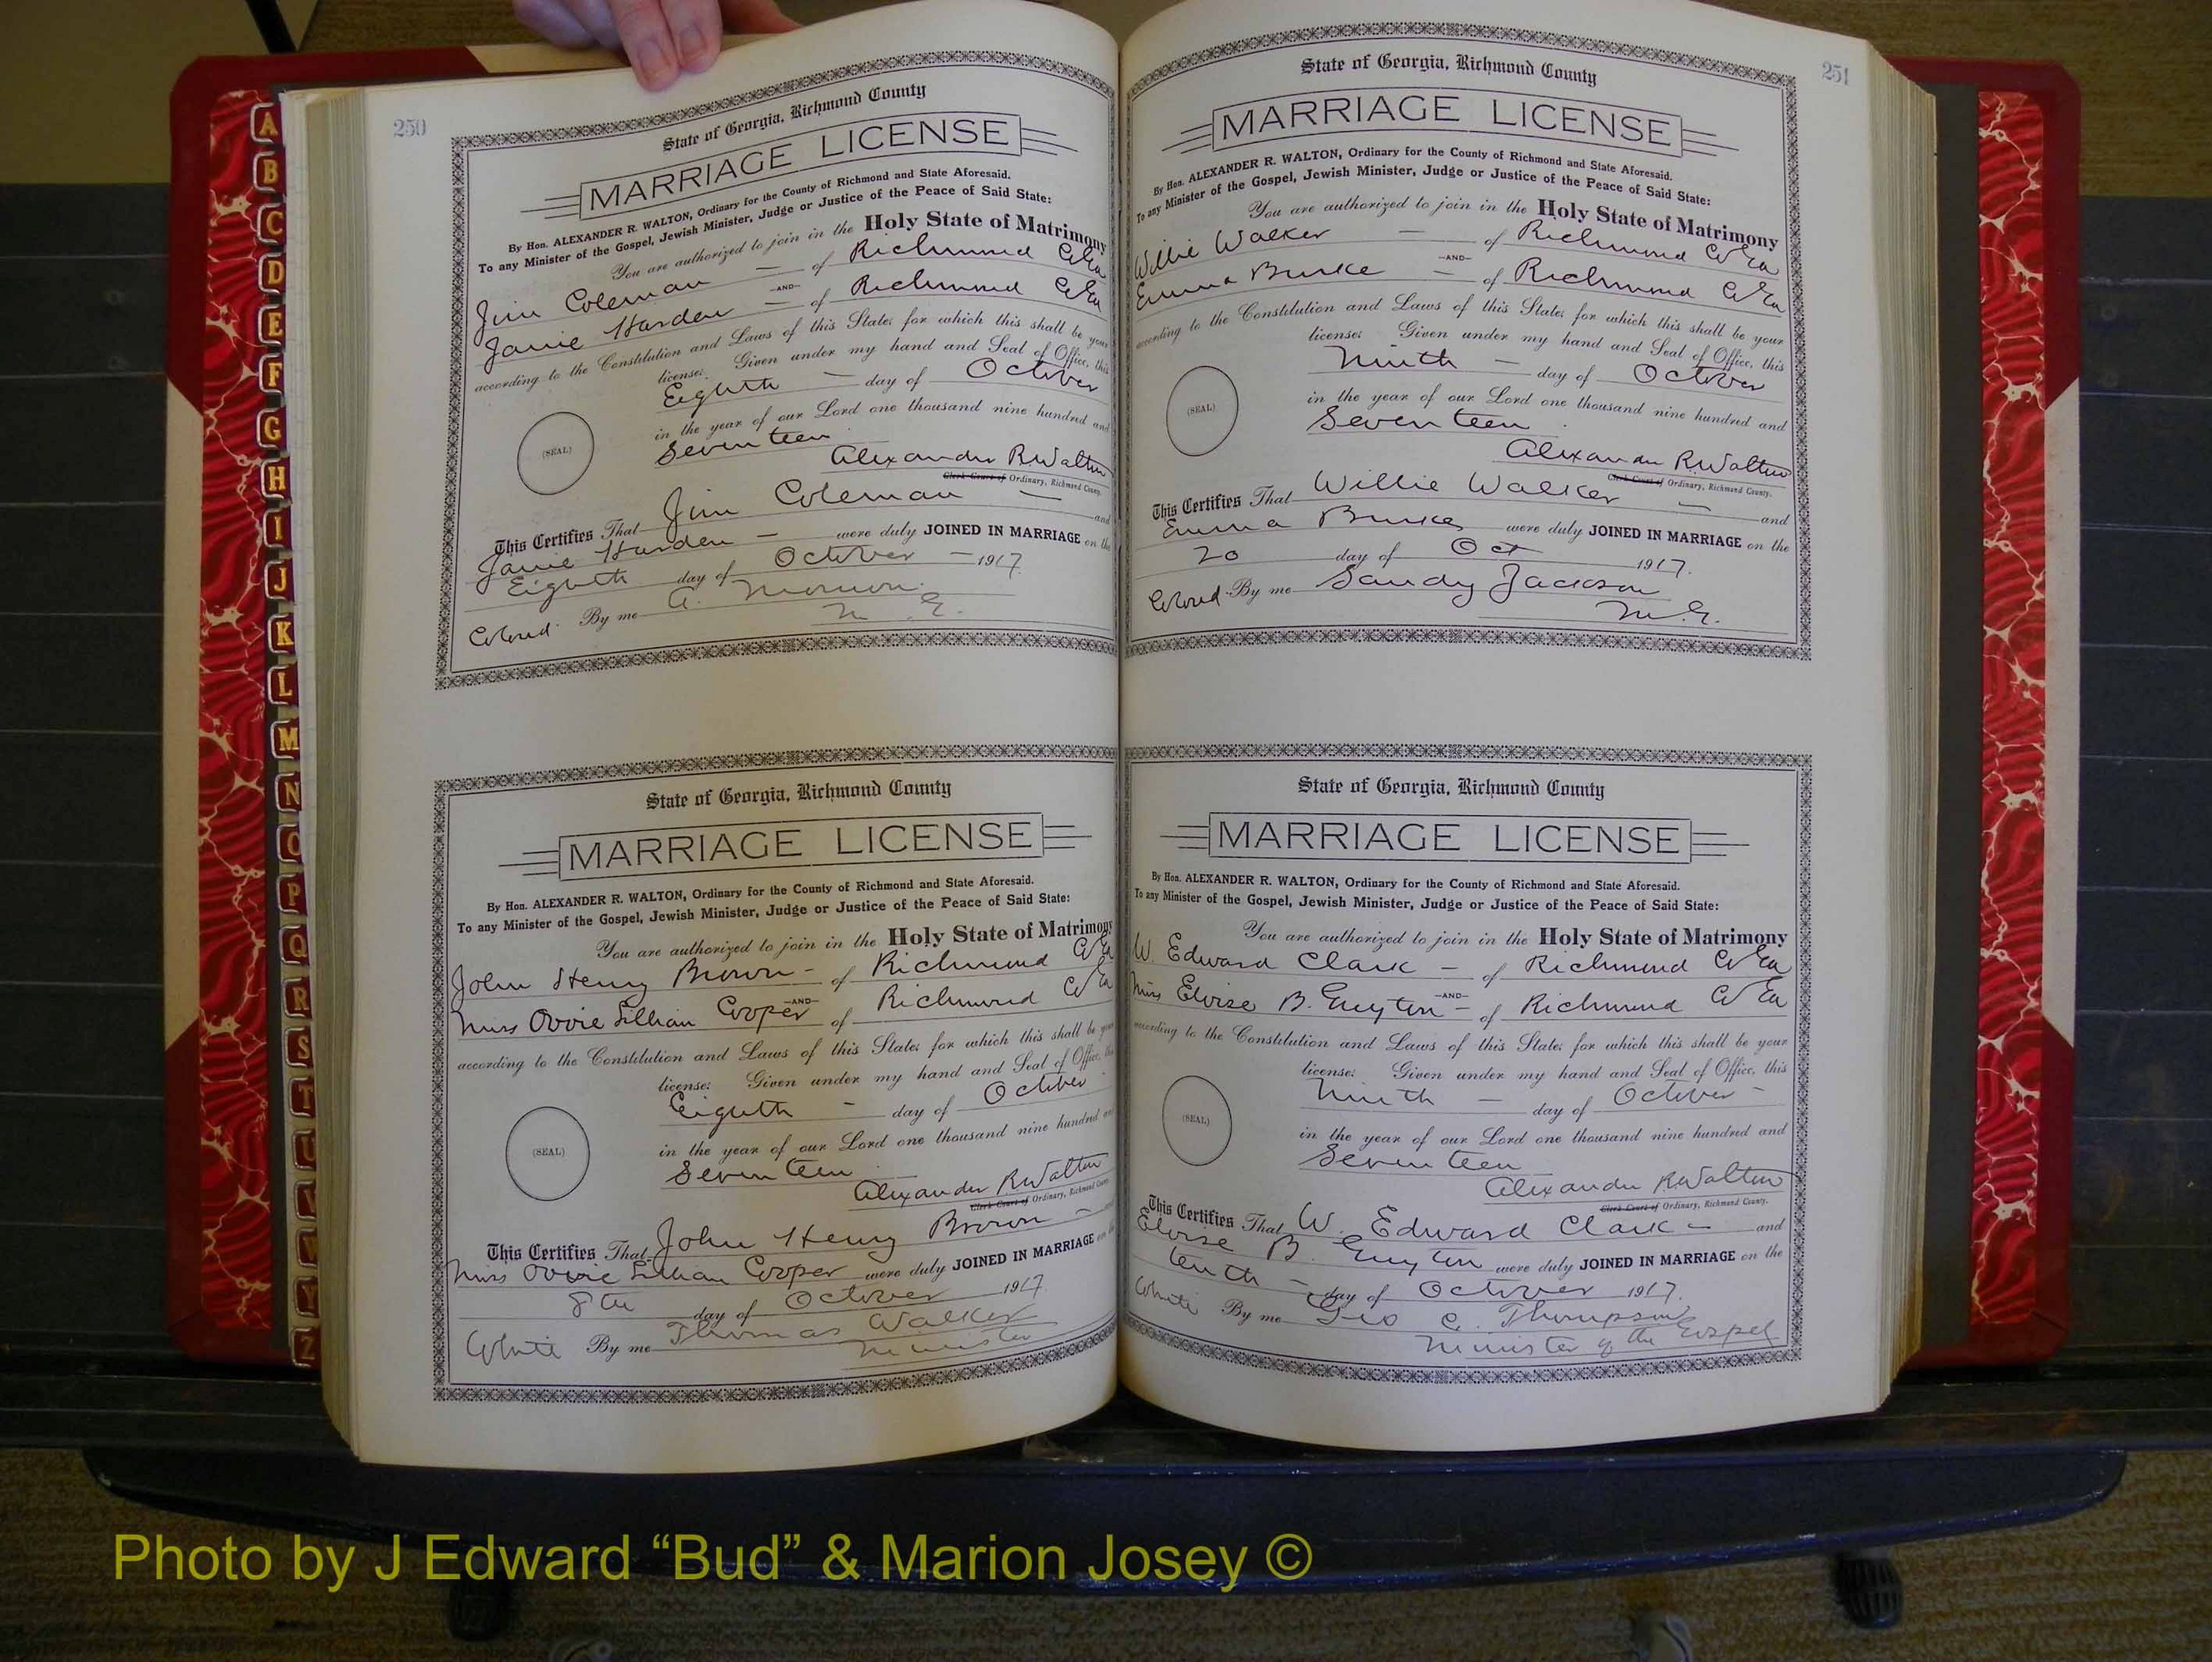 250
State of Georgia, Richmond County
MARRIAGE LICENSE
By Hon. ALEXANDER R. WALTON, Ordinary for the County of Richmond and State Aforesaid.
To any Minister of the Gospel, Jewish Minister, Judge or Justice of the Peace of Said State:
You are authorized to join in the Holy State of Matrimony
Jim Coleman — of Richmond Co Ga
—AND—
Janie Harden — of Richmond Co Ga
according to the Constitution and Laws of this State; for which this shall be your
license. Given under my hand and Seal of Office, this
Eighth — day of October
in the year of our Lord one thousand nine hundred and
Seventeen
(SEAL)
Alexander R Walton
Clerk Court of Ordinary, Richmond County.
This Certifies That Jim Coleman — and
Janie Harden — were duly JOINED IN MARRIAGE on the
Eighth day of October — 1917.
Colored By me A.
M. G.
State of Georgia, Richmond County
MARRIAGE LICENSE
By Hon. ALEXANDER R. WALTON, Ordinary for the County of Richmond and State Aforesaid.
To any Minister of the Gospel, Jewish Minister, Judge or Justice of the Peace of Said State:
You are authorized to join in the Holy State of Matrimony
John Henry Brown — of Richmond Co Ga
—AND—
Miss Lillian Cooper of Richmond Co Ga
according to the Constitution and Laws of this State; for which this shall be your
license. Given under my hand and Seal of Office, this
Eighth — day of October
in the year of our Lord one thousand nine hundred and
Seventeen
(SEAL)
Alexander R Walton
Clerk Court of Ordinary, Richmond County.
This Certifies That John Henry Brown —
Miss Lillian Cooper were duly JOINED IN MARRIAGE on the
8th day of October 1917.
White By me Thomas Walker
Minister
251
State of Georgia, Richmond County
MARRIAGE LICENSE
By Hon. ALEXANDER R. WALTON, Ordinary for the County of Richmond and State Aforesaid.
To any Minister of the Gospel, Jewish Minister, Judge or Justice of the Peace of Said State:
You are authorized to join in the Holy State of Matrimony
Willie Walker — of Richmond Co Ga
—AND—
Emma Burke — of Richmond Co Ga
according to the Constitution and Laws of this State; for which this shall be your
license. Given under my hand and Seal of Office, this
Ninth — day of October
in the year of our Lord one thousand nine hundred and
Seventeen
(SEAL)
Alexander R Walton
Clerk Court of Ordinary, Richmond County.
This Certifies That Willie Walker — and
Emma Burke were duly JOINED IN MARRIAGE on the
20 day of Oct 1917.
Colored By me Sandy Jackson
M. G.
State of Georgia, Richmond County
MARRIAGE LICENSE
By Hon. ALEXANDER R. WALTON, Ordinary for the County of Richmond and State Aforesaid.
To any Minister of the Gospel, Jewish Minister, Judge or Justice of the Peace of Said State:
You are authorized to join in the Holy State of Matrimony
W. Edward Clark — of Richmond Co Ga
—AND—
Miss Eloise B. Guyton — of Richmond Co Ga
according to the Constitution and Laws of this State; for which this shall be your
license. Given under my hand and Seal of Office, this
Ninth — day of October —
in the year of our Lord one thousand nine hundred and
Seventeen
(SEAL)
Alexander R Walton
Clerk Court of Ordinary, Richmond County.
This Certifies That W. Edward Clark — and
Eloise B. Guyton were duly JOINED IN MARRIAGE on the
tenth — day of October 1917.
White By me Geo C. Thompson
Minister of the Gospel
A
B
C
D
E
F
G
H
I
J
K
L
M
N
O
P
Q
R
S
T
U
V
W
Y
Z
Photo by J Edward “Bud” & Marion Josey ©